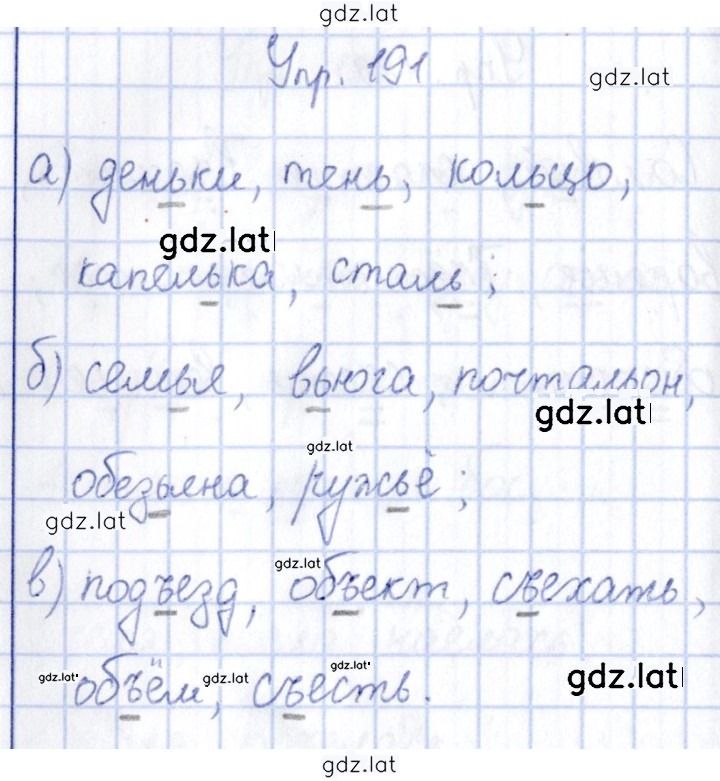 gdz.lat
Упр. 191
gdz.lat
а) деньки, тень, кольцо,
gdz.lat
капелька, сталь;
б) семья, вьюга, почтальон,
gdz.lat
gdz.lat
обезьяна, ружьё;
gdz.lat
gdz.lat
в) подъезд, объект, съехать,
gdz.lat gdz.lat gdz.lat gdz.lat
объём, съесть.
gdz.lat